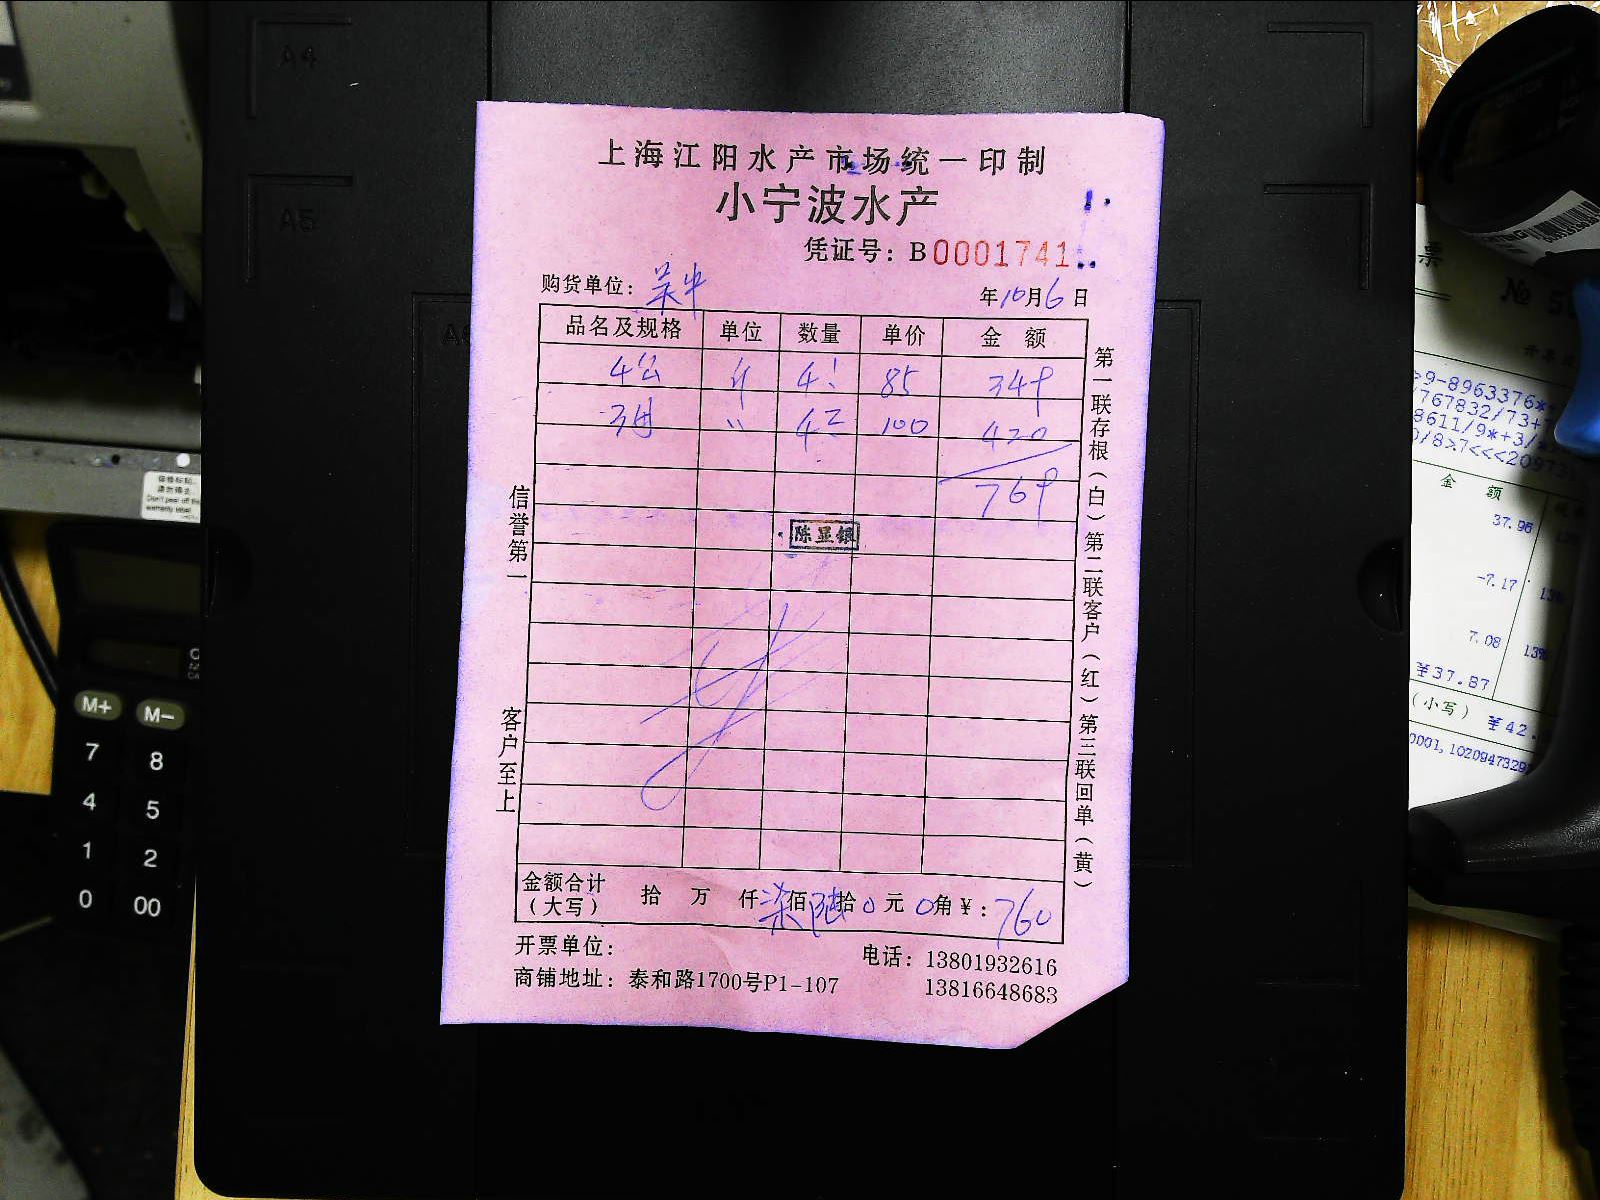 上海江阳水产市场统一印制
小宁波水产
凭证号：B0001741
购货单位：吴中 年10月6日
品名及规格 单位 数量 单价 金 额
4公 斤 85
3母 〃 100 420
陈显银
信誉第一 客户至上
第一联存根（白）第二联客户（红）第三联回单（黄）
金额合计（大写） 拾 万 仟 柒佰 陆拾 0元 0角 ¥：760
开票单位：
电话：13801932616
13816648683
商铺地址：泰和路1700号P1-107
A4
A5
M+ M-
7 8
4 5
1 2
0 00
票
№ 5
>9-8963376*
767832/73+
8611/9*+3/
/8>7<<<20973
金 额
37.96
-7.17
7.08
13%
¥37.87
（小写） ¥42.